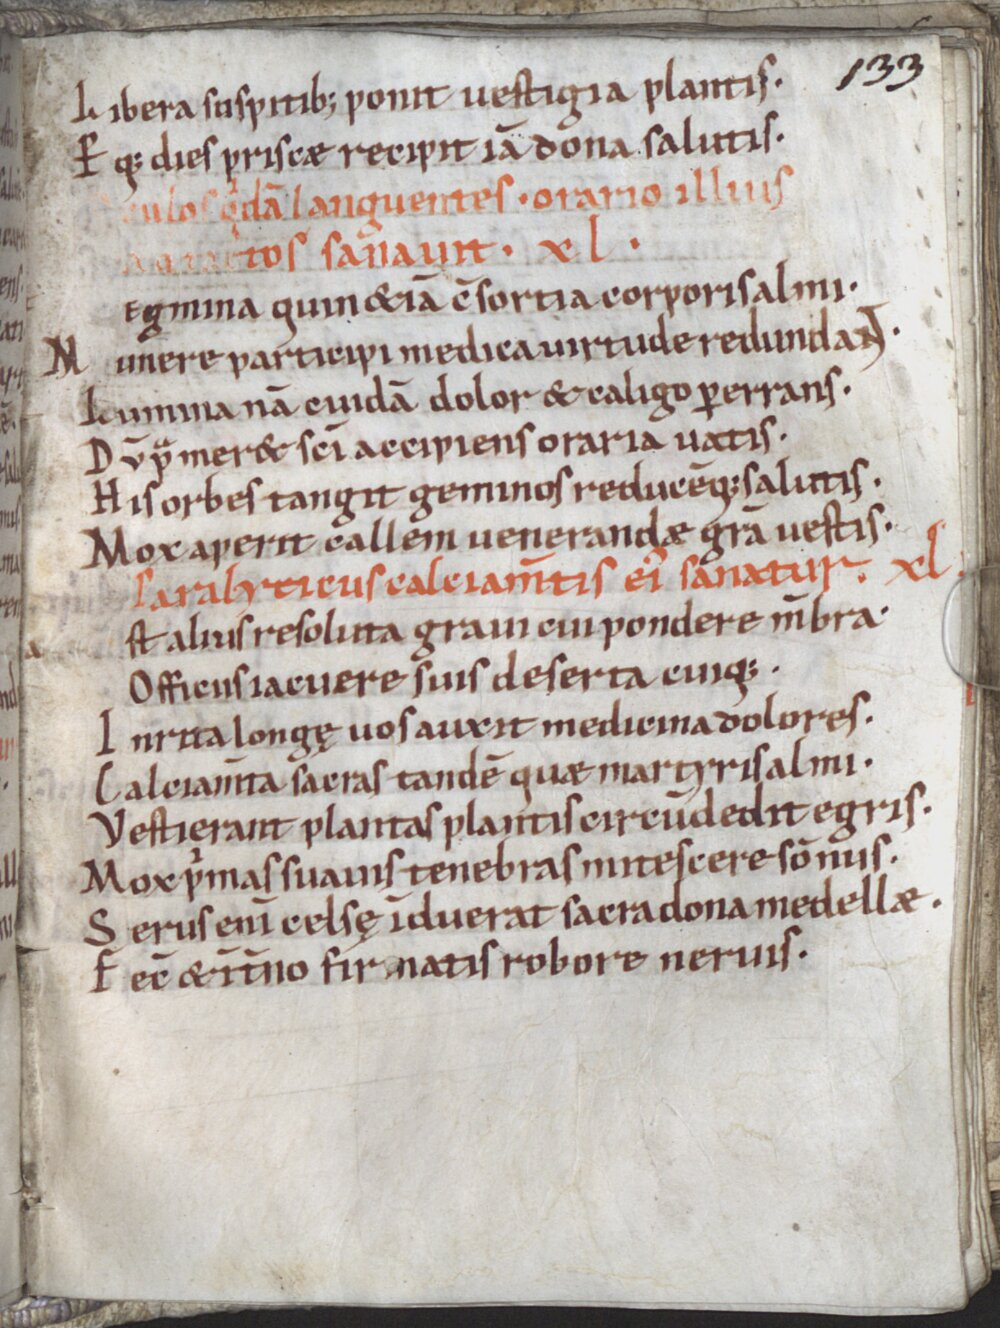 133
Libera suspitib; ponit vestigia plantis.
Eq; dies priscæ recipit iā dona salutis.
culos qdā languentes. orario illius
tos sanavit. xl.
Egmina quin &iā c̄sortia corporis almi.
Munere participi medica uirtude redundanT.
Lumina nā cuidā dolor & caligo perrans.
Dū pͣmer& sc̄i accipiens oraria uatis.
His orbes tangit geminos reducēq; salutis.
Mox aperit callem venerandæ grā vestis.
Paralyticus calciam̄tis ei' sanatur. xl
st alius resoluta gravi cui pondere m̄bra.
Officiis iacuere suis deserta cuiq;.
Inrita longę uos auxit medicina dolores.
Calciam̄ta sacras tandē quæ martyris almi.
Vestierant plantas plantis circūdedit egris.
Mox pͥmas suauis tenebras mitescere sōnus.
Serus enī celsę īduerat sacra dona medellæ.
Fec̄ & īt̄no firmatis robore nervis.